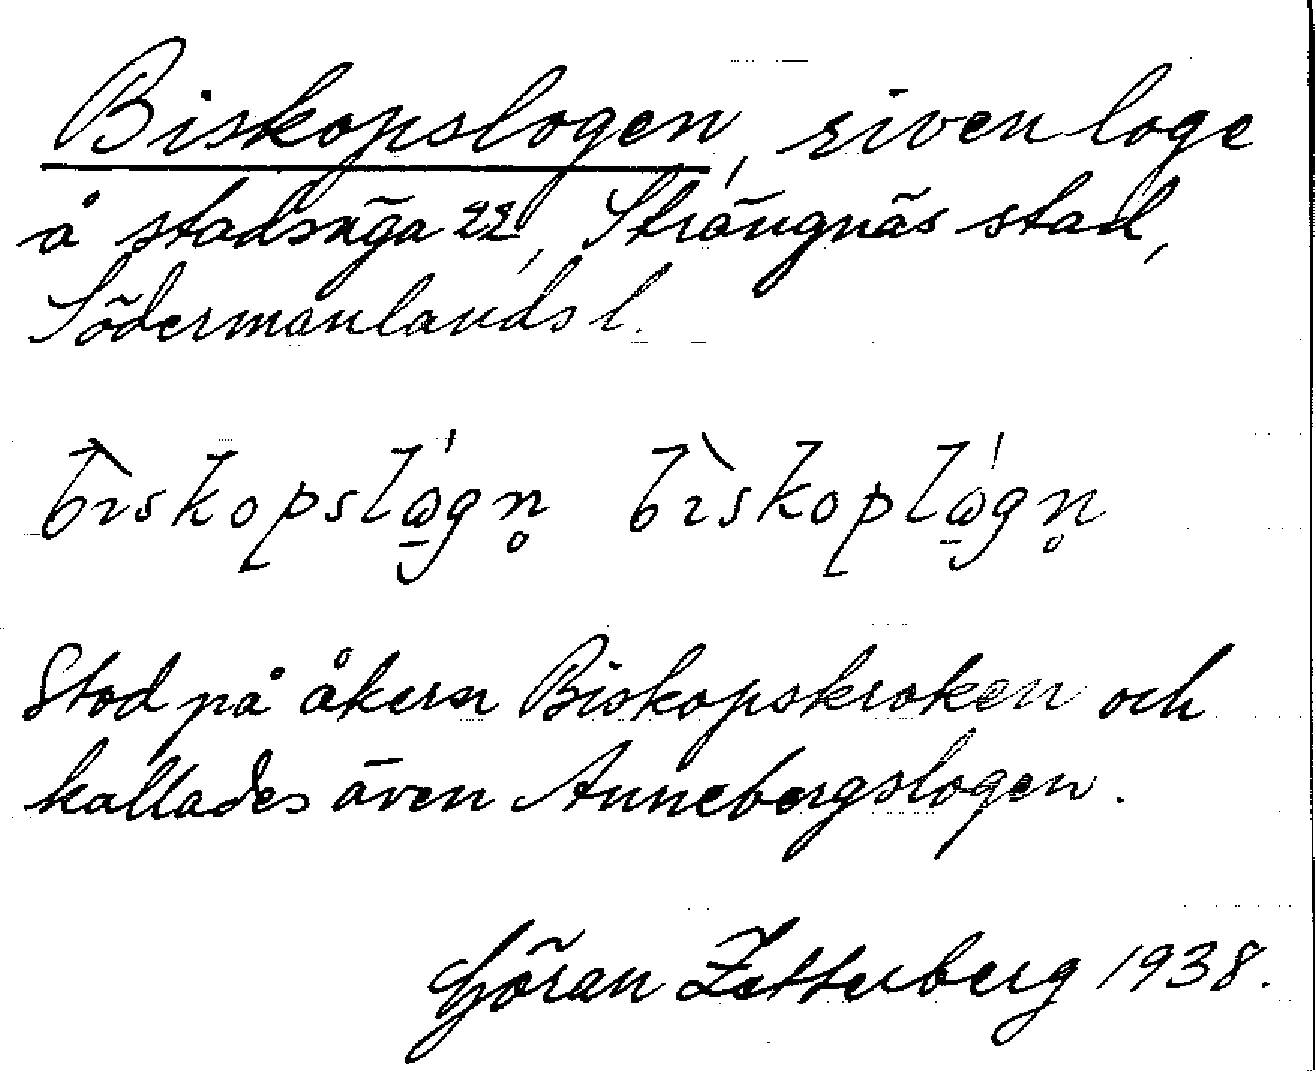 Biskopslogen, riven loge
å stadsäga 22, Strängnäs stad,
Södermanlands l.
bìskopslǻgn̥ bìskoplǻgn̥
Stod på åkern Biskopskroken och
kallades även Annebergslogen.
Göran Zetterberg 1938.